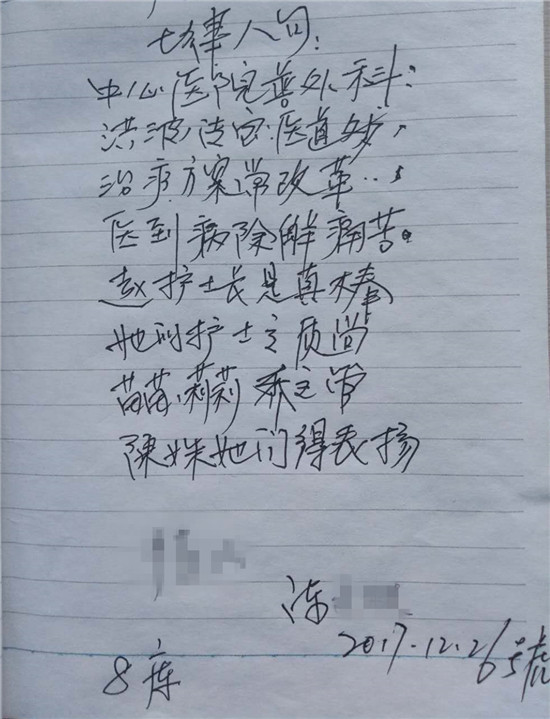 人间:
中心医院普外科:
洪波传宏医道妙,
治疗方案常改革...
医到病除解痛苦。
赵护士长是真棒
她的护士高质尚
苗苗,莉莉乔主管
陳姝她们得表扬
陈
2017.12.26号
8床